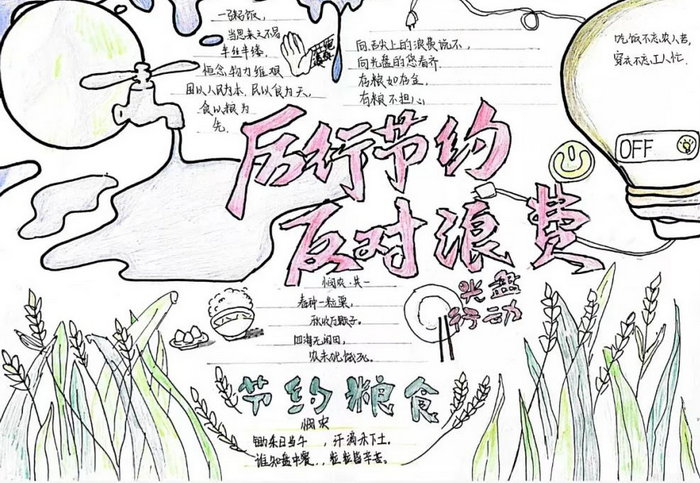 一粥一饭,
当思来之不易
半丝半缕,
恒念物力维艰
国以人民为本,民以食为天,
食以粮为
先。
向舌尖上的浪费说不,
向光盘的您看齐
存粮如存金,
有粮不担心
吃饭不忘农人苦,
穿衣不忘工人忙
OFF
厉行节约
反对浪费
悯农·其一
春种一粒粟,
秋收万颗子。
四海无闲田,
农夫犹饿死。
光盘
行动
节约粮食
悯农
锄禾日当午,汗滴禾下土。
谁知盘中餐,粒粒皆辛苦。